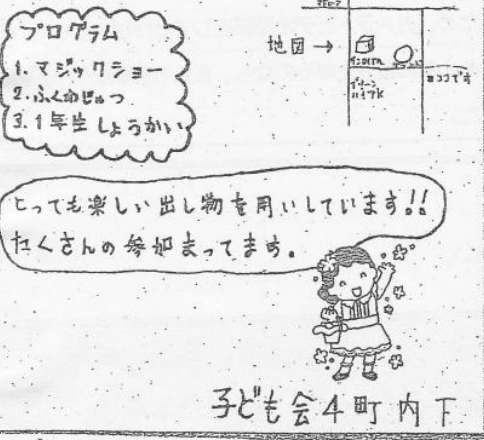 プログラム
1.マジックショー
2.ふくわじゅつ
3.1年生しょうかい
地図→
ココです
とっても楽しい出し物を用いしています!!
たくさんの参加まってます。
子ども会4町内下